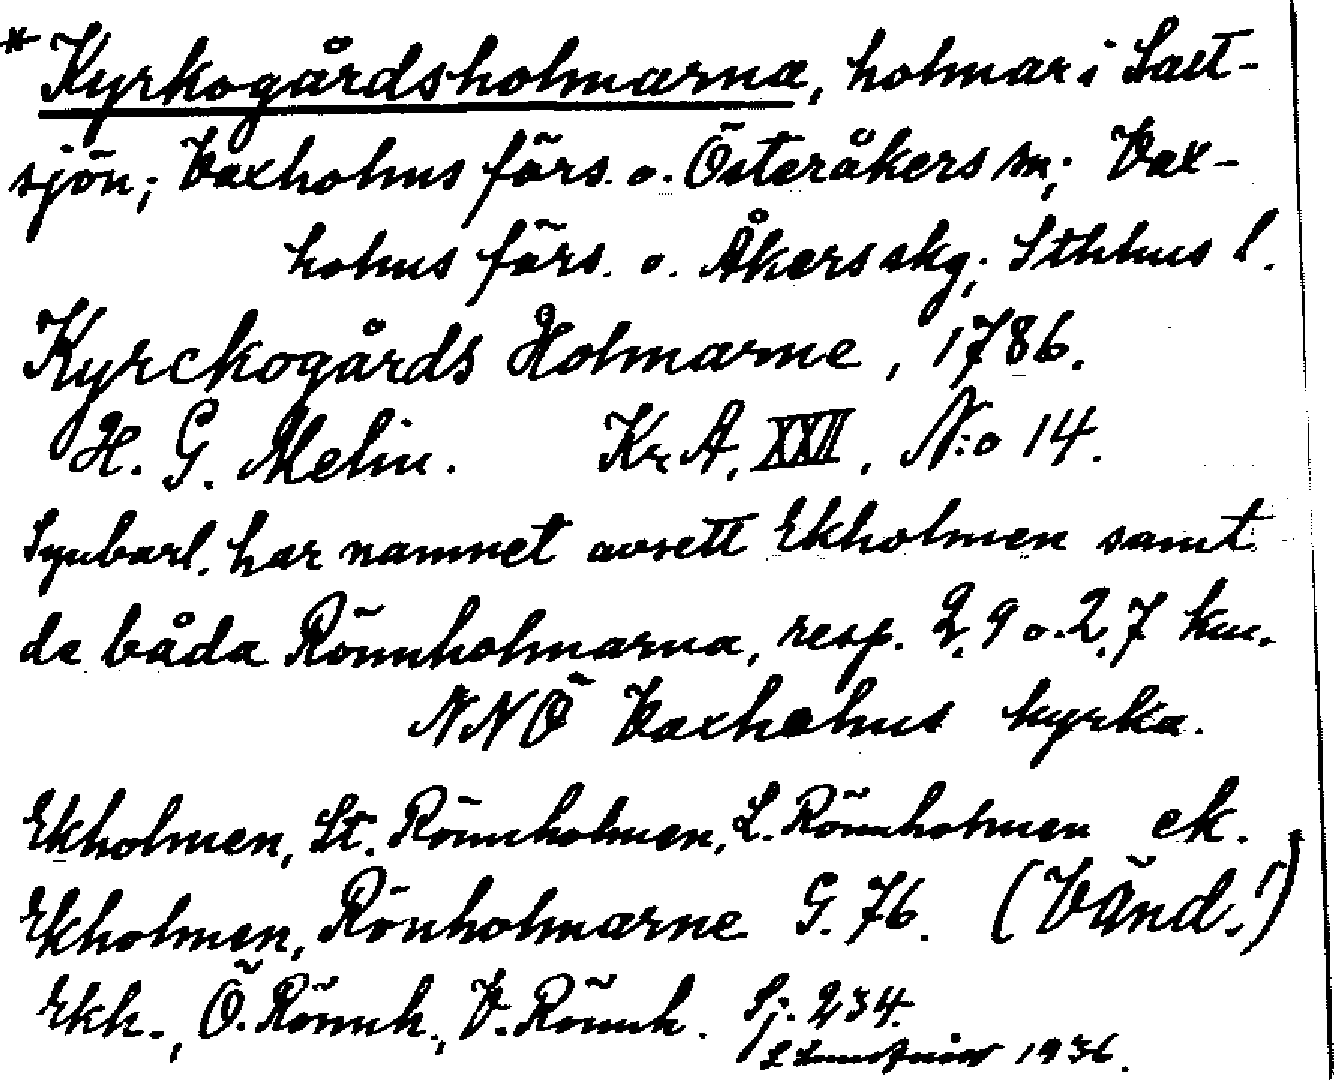 * Kyrkogårdsholmarna, holmar i Salt-
sjön; Vaxholms förs. o. Österåkers sn; Vax-
holms förs. o. Åkers skg; Sthlms l.
Kyrckogårds Holmarne, 1786.
H. G. Melin. Kr. A. XXII, N:o 14.
Synbarl. har namnet avsett Ekholmen samt
de båda Rönnholmarna, resp. 2,9 o. 2,7 km.
NNÖ Vaxholms kyrka.
Ekholmen, St. Rönnholmen, L. Rönnholmen ek.
Ekholmen, Rönholmarne G. 76. (Vänd!)
Ekh., Ö. Rönnh., V. Rönnh. Sj. 234.
1936.